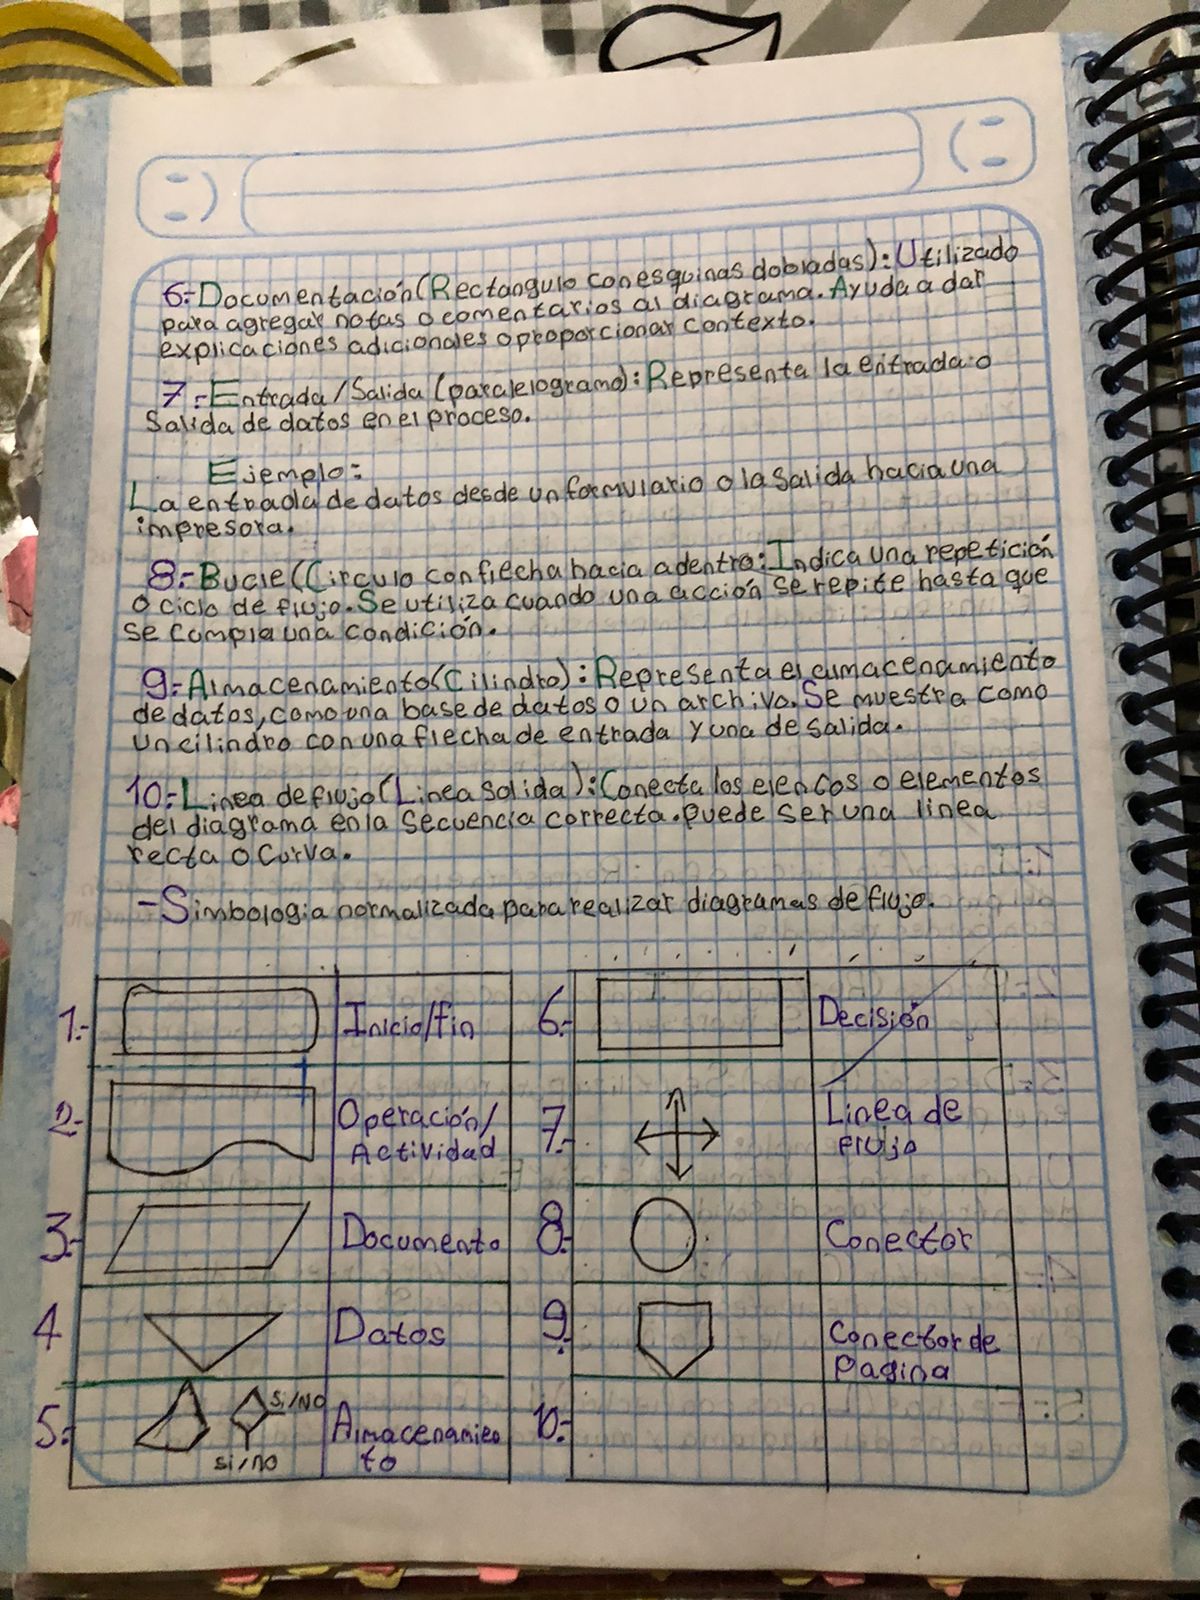 6.-Documentación(Rectangulo con esquinas dobladas):Utilizado
para agregar notas o comentarios al diagrama.Ayuda a dar
explicaciones adicionales o proporcionar contexto.
7.-Entrada/Salida (paralelogramo):Representa la entrada o
Salida de datos en el proceso.
Ejemplo:
La entrada de datos desde un formulario o la salida hacia una
impresora.
8.-Bucle(Circulo con flecha hacia adentro:Indica una repetición
o ciclo de flujo.Se utiliza cuando una acción se repite hasta que
se cumpla una condición.
9.-Almacenamiento(Cilindro):Representa el almacenamiento
de datos,como una base de datos o un archivo.Se muestra como
un cilindro con una flecha de entrada y una de salida.
10.-Linea de flujo(Linea solida):Conecta los elementos
del diagrama en la secuencia correcta.puede ser una linea
recta o curva.
-Simbologia normalizada para realizar diagramas de flujo.
1.- Inicio/fin
2.- Operación/
Actividad
3.- Documento
4 Datos
5.- si/no
si/no
Almacenamien
to
6.- Decisión
7.- Linea de
flujo
8.- Conector
9. Conector de
Pagina
10.-